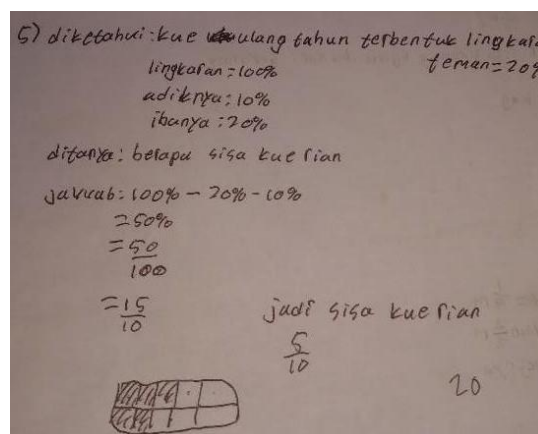 5) diketahui : kue ulang tahun terbentuk lingkar
teman = 20%
lingkaran = 100%
adiknya : 10%
ibunya : 20%
ditanya : berapa sisa kue rian
jawab : 100% - 20% - 10%
= 50%
= 50/100
= 15/10
jadi sisa kue rian
5/10
20